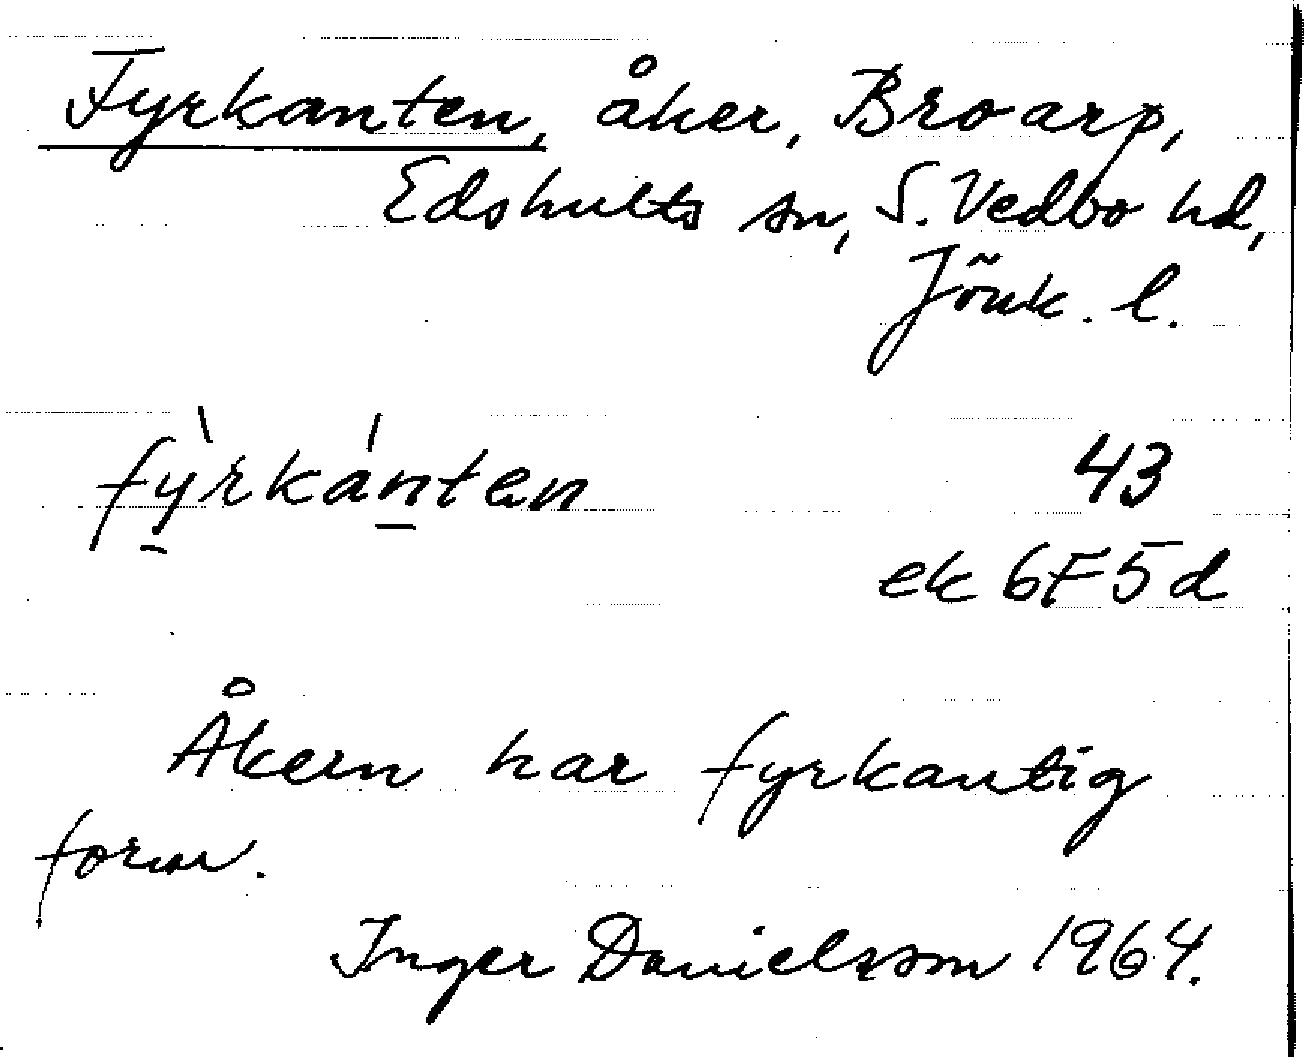 Fyrkanten, åker, Broarp,
Edshults sn, S. Vedbo hd,
Jönk. l.
fỳ̠rkán̠ten 43
ek 6F5d
Åkern har fyrkantig
form.
Inger Danielsson 1964.